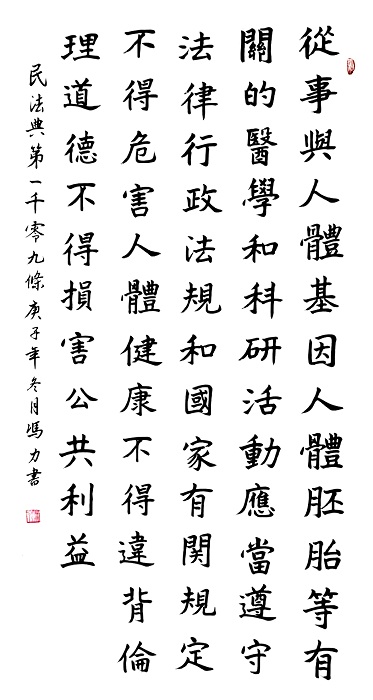 從事與人體基因人體胚胎等有
關的醫學和科研活動應當遵守
法律行政法規和國家有関規定
不得危害人體健康不得違背倫
理道德不得損害公共利益
民法典第一千零九條庚子年冬月馮力書